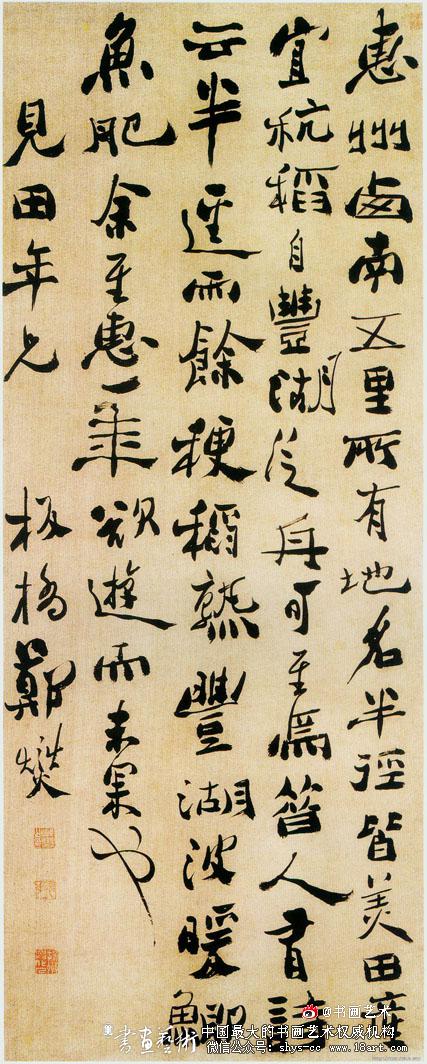 惠州西南五里所有地名半徑皆美田
宜秔稻自豐湖泛舟可至焉昔人有詩
云半逕雨餘粳稻熟豐湖波暖鯽
魚肥余至惠一年欲遊而未果也
見田年兄 板橋鄭燮
@书画艺术
書画藝術
中国最大的书画艺术权威机构
微信公众号: shys-cc www.18art.com